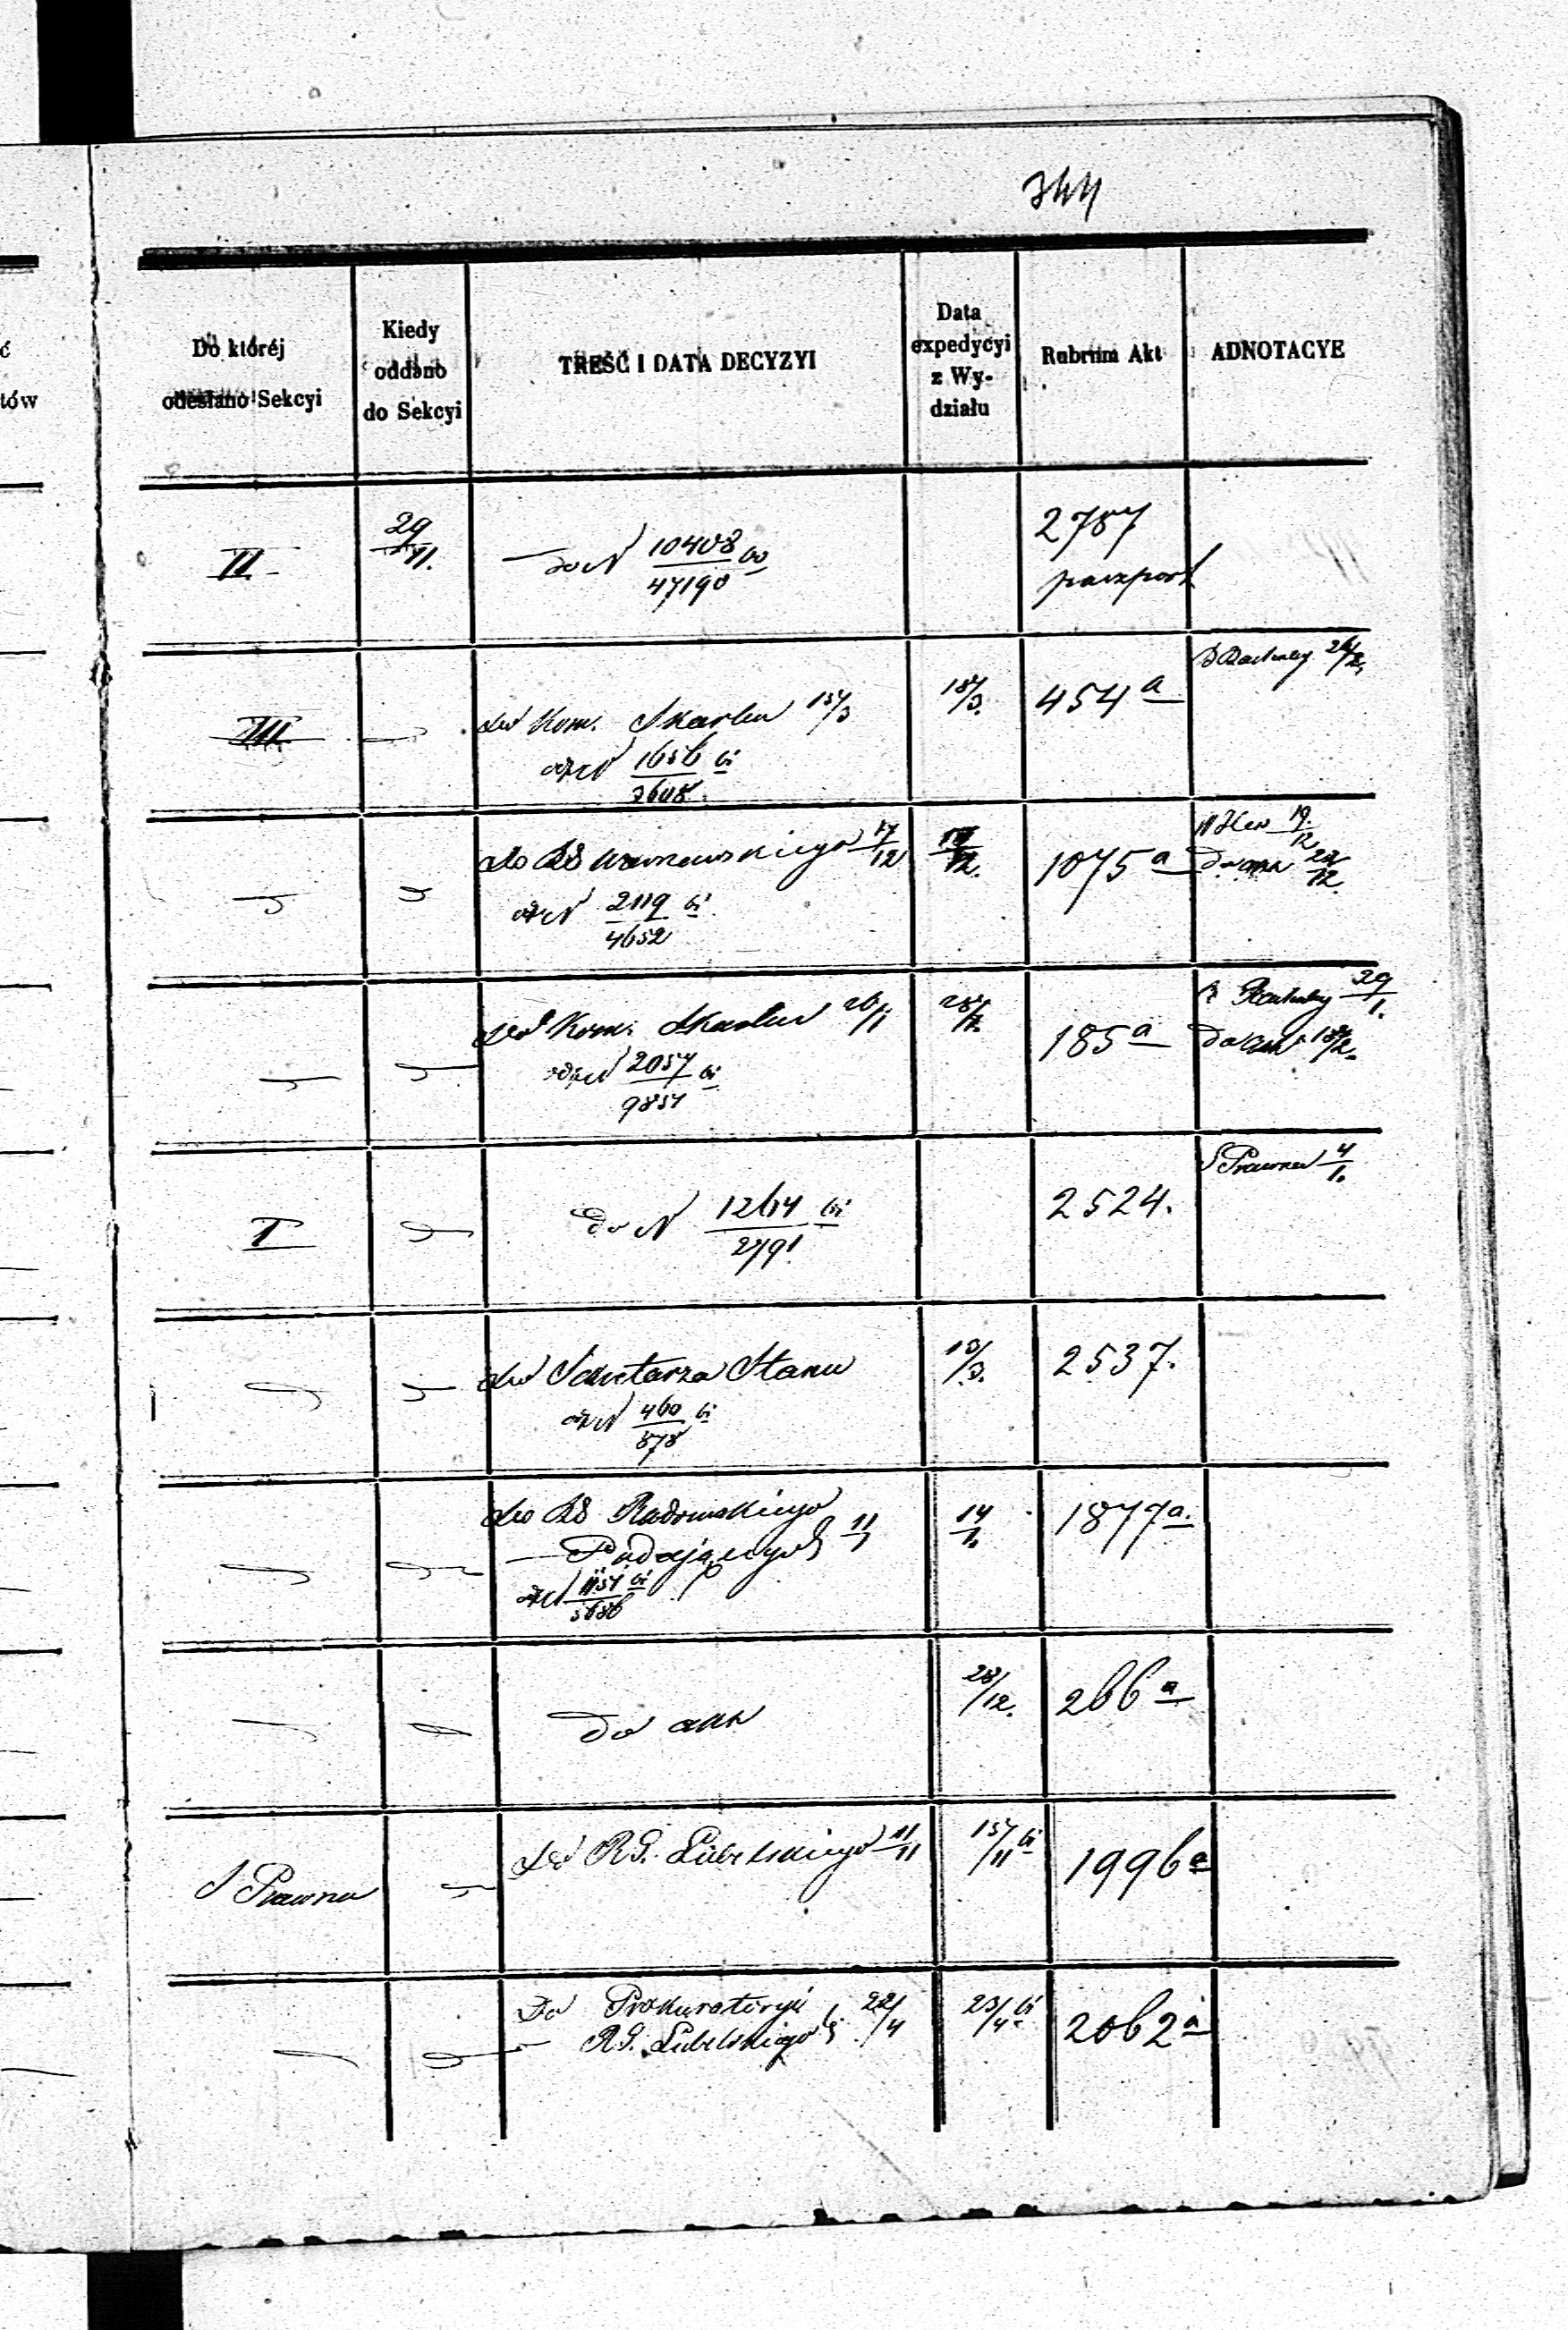 344
Do któréj
odesłano Sekcyi
Kiedy
oddano
do Sekcyi
TREŚĆ I DATA DECYZYI
Data
expedycyi
z Wy-
działu
Rubrum Akt
ADNOTACYE
ć
tów
II
29/11.
do N 10408/47190
2787
paszport
III
do Kom. Skarbu 15/3
N 1656/3608
18/3.
454 a
26/2.
do RG Warszawskiego 17/12
N 2119/4652
1075 a
19/12
do akt 22/12.
do Kom. Skarbu 26/1
N 2057/9857
28/
185 a
29/1.
do akt 18/2.
I
do N 12614/2791
2524.
S Prawna 4/1.
do Sekretarza Stanu
N 460/878
13/3.
2537.
do RG Radomskiego
Podającego 11/1
N 1157/3686
14/1.
1877 a.
do akt
28/12.
266 a
S Prawna
do RG. Lubelskiego 11/11
15/11
1996 a
Do Prokuratoryi
RG. Lubelskiego 22/4
23/4
2062 a